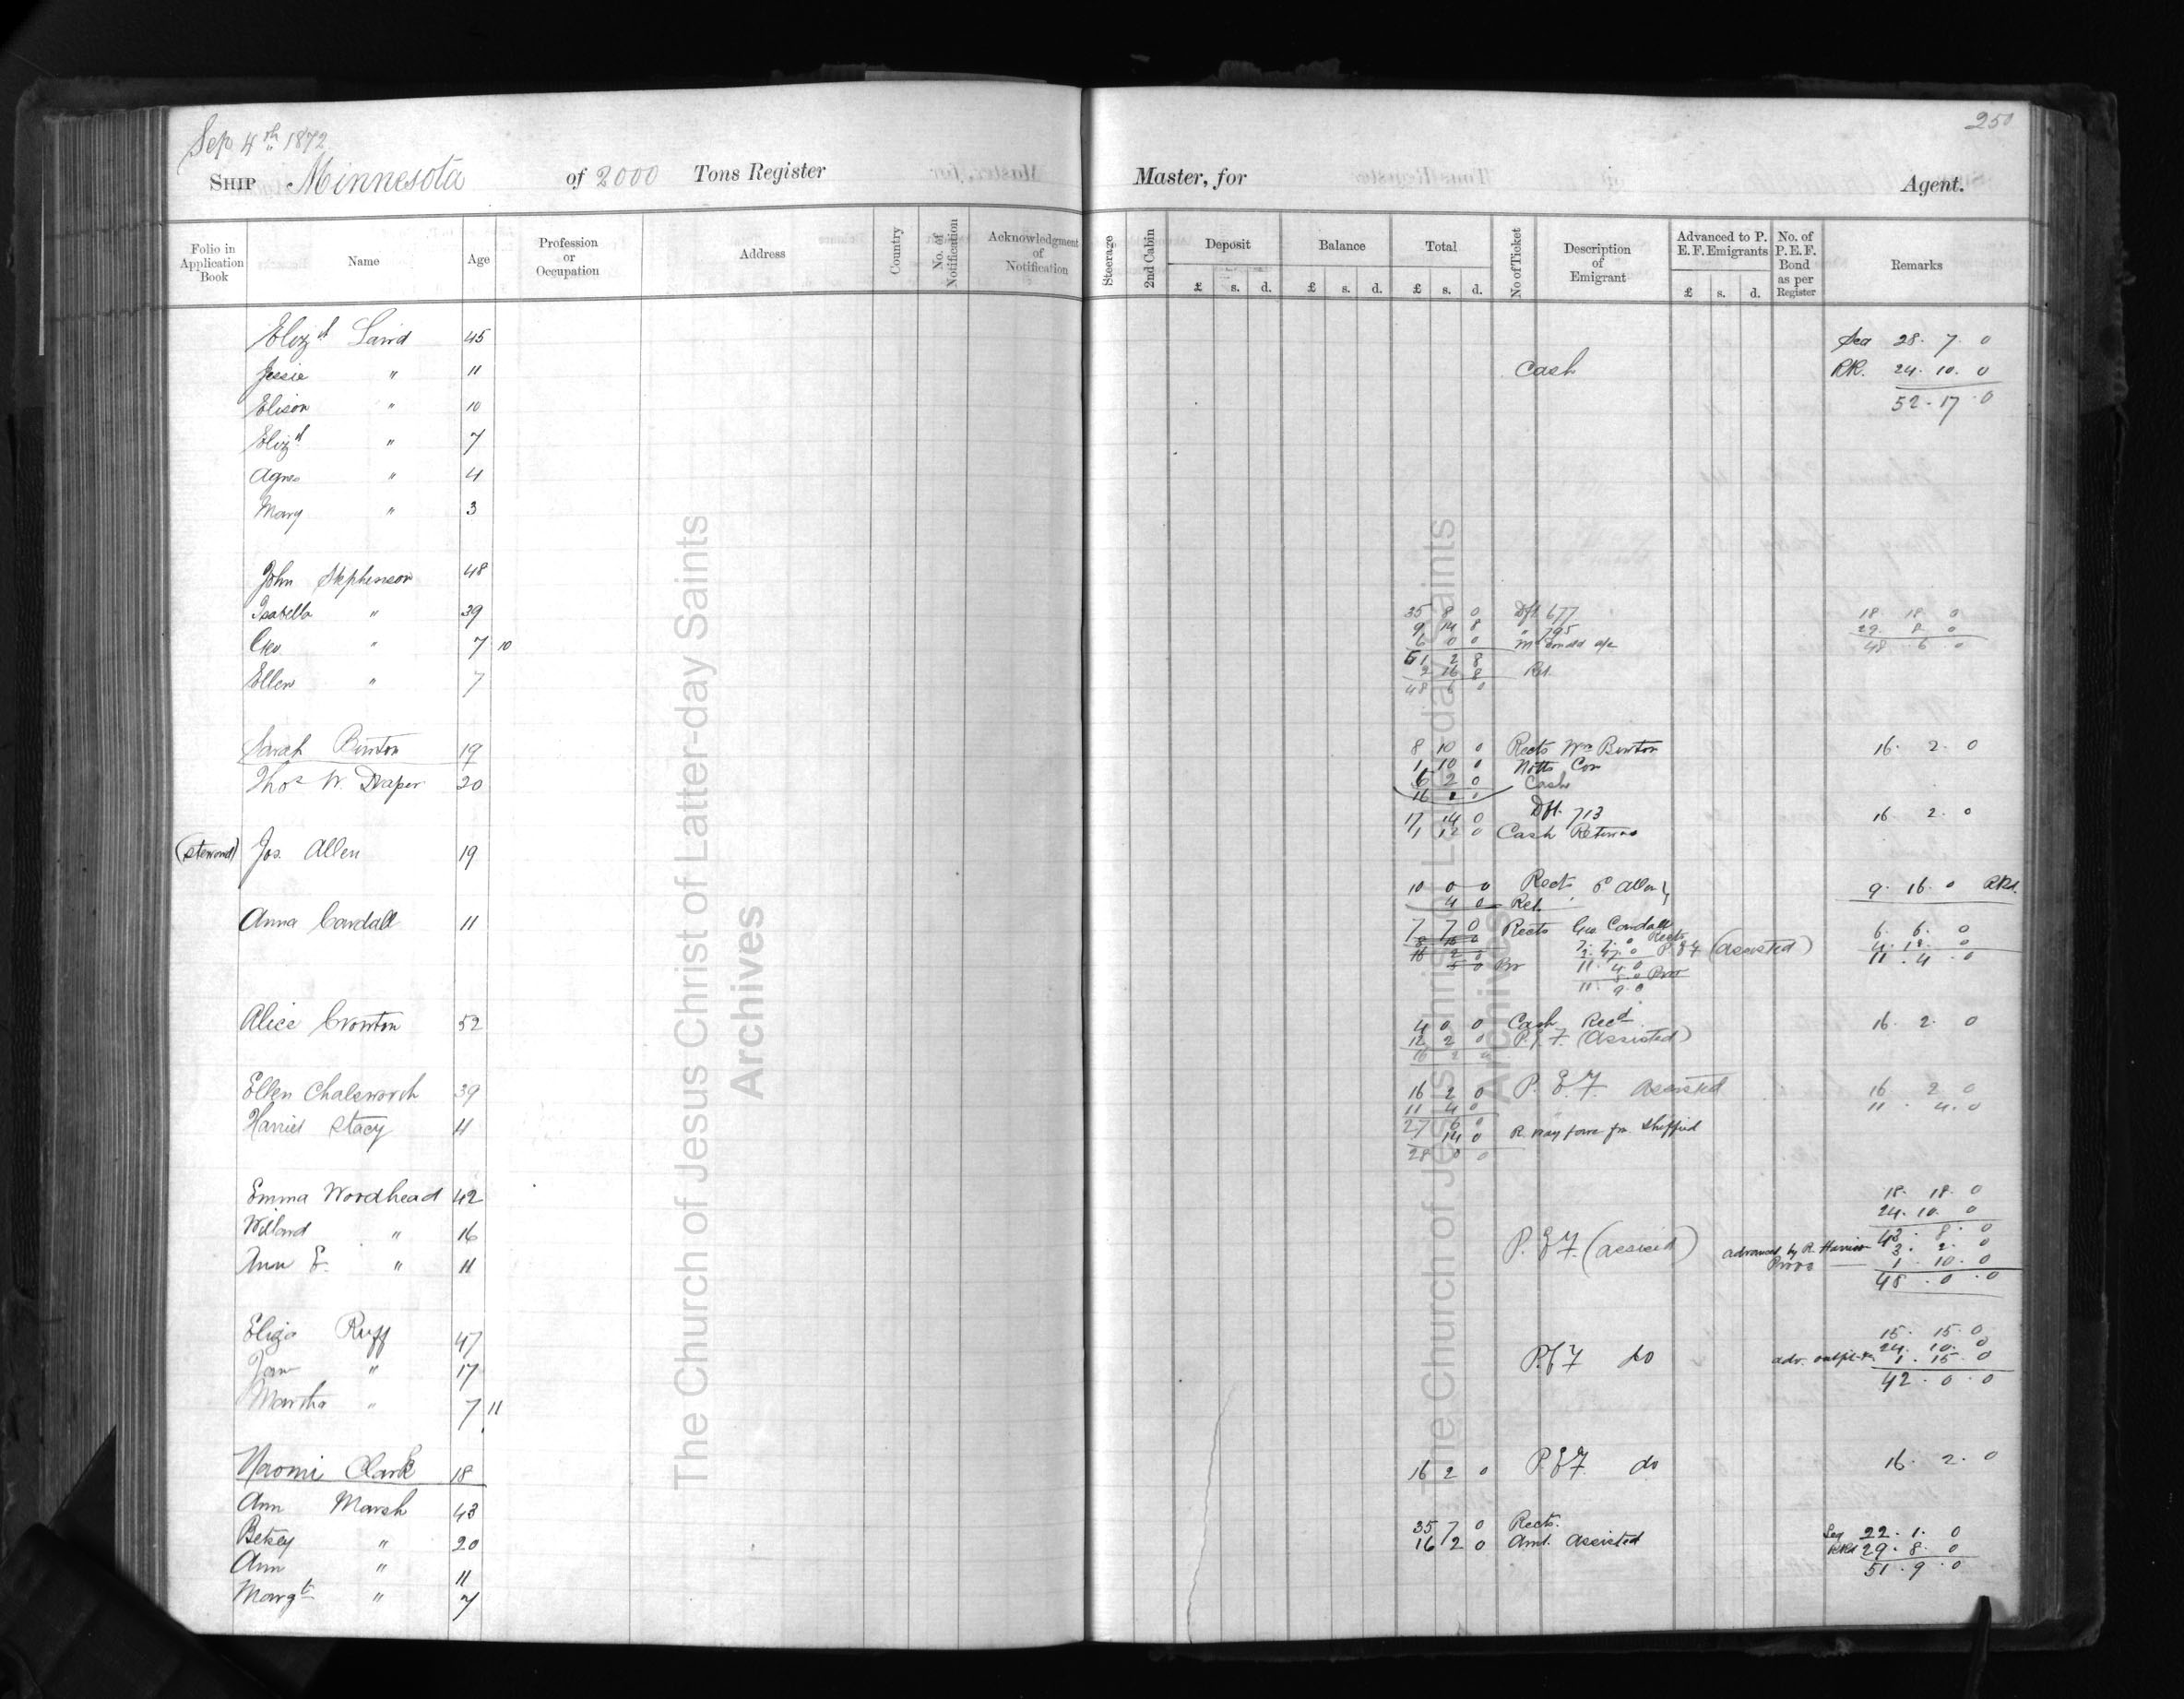 250
Sep 4th 1872
Ship Minnesota of 2000 Tons Register Master, for Agent.
Folio in Application Book Name Age Profession or Occupation Address Country No. of Notification Acknowledgment of Notification Steerage 2nd Cabin Deposit Balance Total No of Ticket Description of Emigrant Advanced to P. E. F. Emigrants No. of P. E. F. Bond as per Register Remarks
£ s. d. £ s. d. £ s. d. £ s. d.
Elizth Laird 45 Sea 28. 7. 0
Jessie " 11 Cash RR. 24. 10. 0
Elison " 10 52. 17. 0
Elizth " 7
Agnes " 4
Mary " 3
John Stephenson 48
Isabella " 39 35 8 0 Dft 677 18 18 0
9 14 8 " 795 29 8 0
Geo " 7 10 6 0 0 48 6 0
51 2 8
2 16 8 Ret.
Ellen " 7 48 6 0
Sarah Burton 19 8 10 0 Rects Wm Burton 16. 2. 0
1 10 0 Notts Con
Thos W. Draper 20 6 2 0 Cash
16 2 0
17 14 0 Dft. 713 16 2. 0
1 12 0 Cash Returned
(steward) Jos. Allen 19
10 0 0 Rects Allen 9. 16. 0
4 0 Ret.
Anna Candall 11 7 7 0 Rects Geo Candall 6. 6. 0
7. 7. 0 Rects
P. E F (assisted) 4. 18. 0
16 2 0 11. 4. 0 11. 4. 0
5 0
11. 9. 0
Alice Crowton 52 4 0 0 Cash Recd 16. 2. 0
12 2 0 P. E. F. (Assisted)
16 2 "
Ellen Chatsworth 39 16 2 0 P. E F assisted 16 2 0
11 4 0 11. 4. 0
Harriet Stacy 11 27 6 0
14 0 R. way fare fm. Sheffield
28 0 0
Emma Woodhead 42 18. 18. 0
Willard " 16 24. 10. 0
43. 8. 0
P. E F. (assisted) advanced by R. Harrison 3. 2. 0
Ann E. " 11 Provo 1. 10. 0
48. 0. 0
Eliza Ruff 47 15. 15. 0
24. 10. 0
Jane " 17 P. E F do adv. outfit &c 1. 15. 0
42. 0. 0
Martha " 7 11
Naomi Clark 18 16 2 0 P. E F. do 16. 2. 0
Ann Marsh 43
35 7 0 Rects.
Betsey " 20 16 2 0 Amt. Assisted Sea 22. 1. 0
Ann " 11 29. 8. 0
51. 9. 0
Margt " 7
The Church of Jesus Christ of Latter-day Saints
Archives
The Church of Jesus Christ of Latter-day Saints
Archives